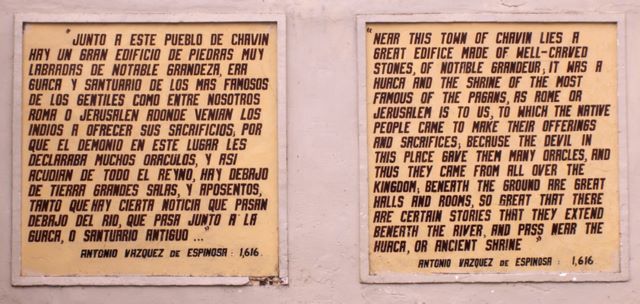 "JUNTO A ESTE PUEBLO DE CHAVIN
HAY UN GRAN EDIFICIO DE PIEDRAS MUY
LABRADAS DE NOTABLE GRANDEZA, ERA
GUACA Y SANTUARIO DE LOS MAS FAMOSOS
DE LOS GENTILES COMO ENTRE NOSOTROS
ROMA O JERUSALEN ADONDE VENIAN LOS
INDIOS A OFRECER SUS SACRIFICIOS; POR
QUE EL DEMONIO EN ESTE LUGAR LES
DECLARABA MUCHOS ORACULOS, Y ASI
ACUDIAN DE TODO EL REYNO, HAY DEBAJO
DE TIERRA GRANDES SALAS, Y APOSENTOS,
TANTO QUE HAY CIERTA NOTICIA QUE PASAN
DEBAJO DEL RIO, QUE PASA JUNTO A LA
GUACA, O SANTUARIO ANTIGUO ..."
ANTONIO VAZQUEZ DE ESPINOSA : 1,616.
"NEAR THIS TOWN OF CHAVIN LIES A
GREAT EDIFICE MADE OF WELL-CARVED
STONES, OF NOTABLE GRANDEUR; IT WAS A
HUACA AND THE SHRINE OF THE MOST
FAMOUS OF THE PAGANS, AS ROME OR
JERUSALEM IS TO US, TO WHICH THE NATIVE
PEOPLE CAME TO MAKE THEIR OFFERINGS
AND SACRIFICES; BECAUSE THE DEVIL IN
THIS PLACE GAVE THEM MANY ORACLES, AND
THUS THEY CAME FROM ALL OVER THE
KINGDOM; BENEATH THE GROUND ARE GREAT
HALLS AND ROOMS, SO GREAT THAT THERE
ARE CERTAIN STORIES THAT THEY EXTEND
BENEATH THE RIVER, AND PASS NEAR THE
HUACA, OR ANCIENT SHRINE"
ANTONIO VAZQUEZ DE ESPINOSA : 1,616